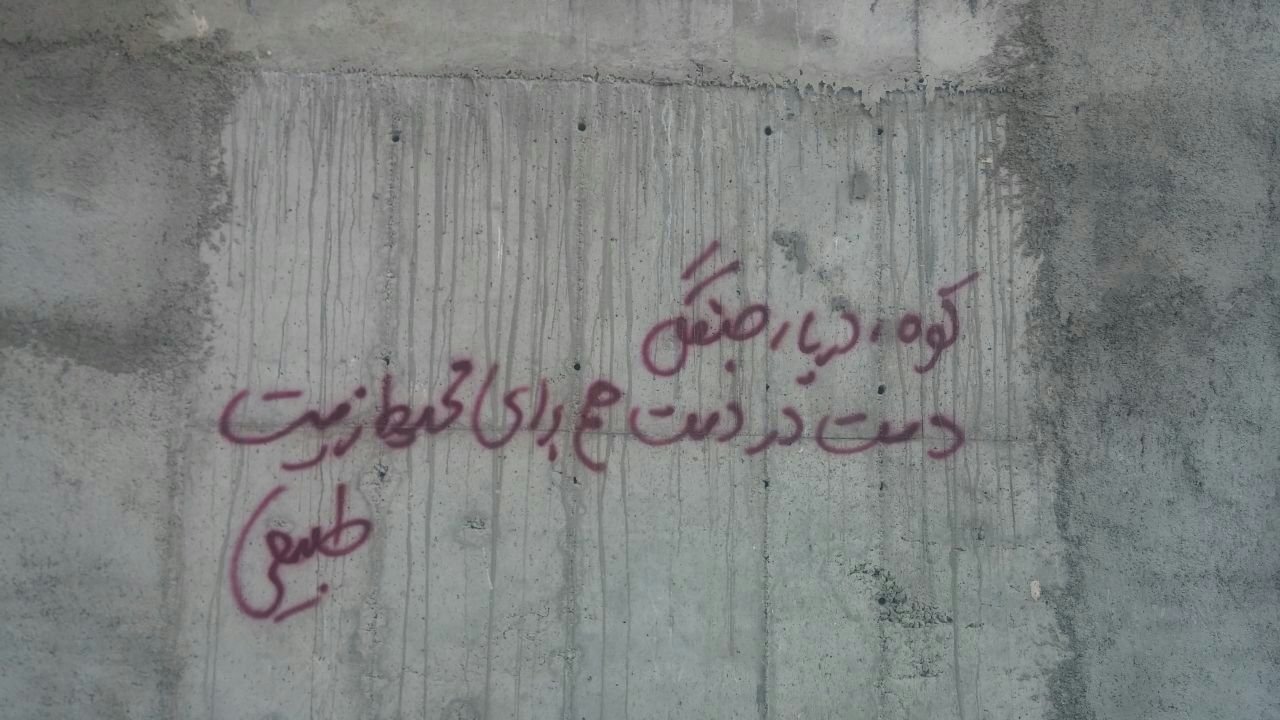 کوه، دریا، جنگل
دست در دست هم برای محیط زیست
طبیعی